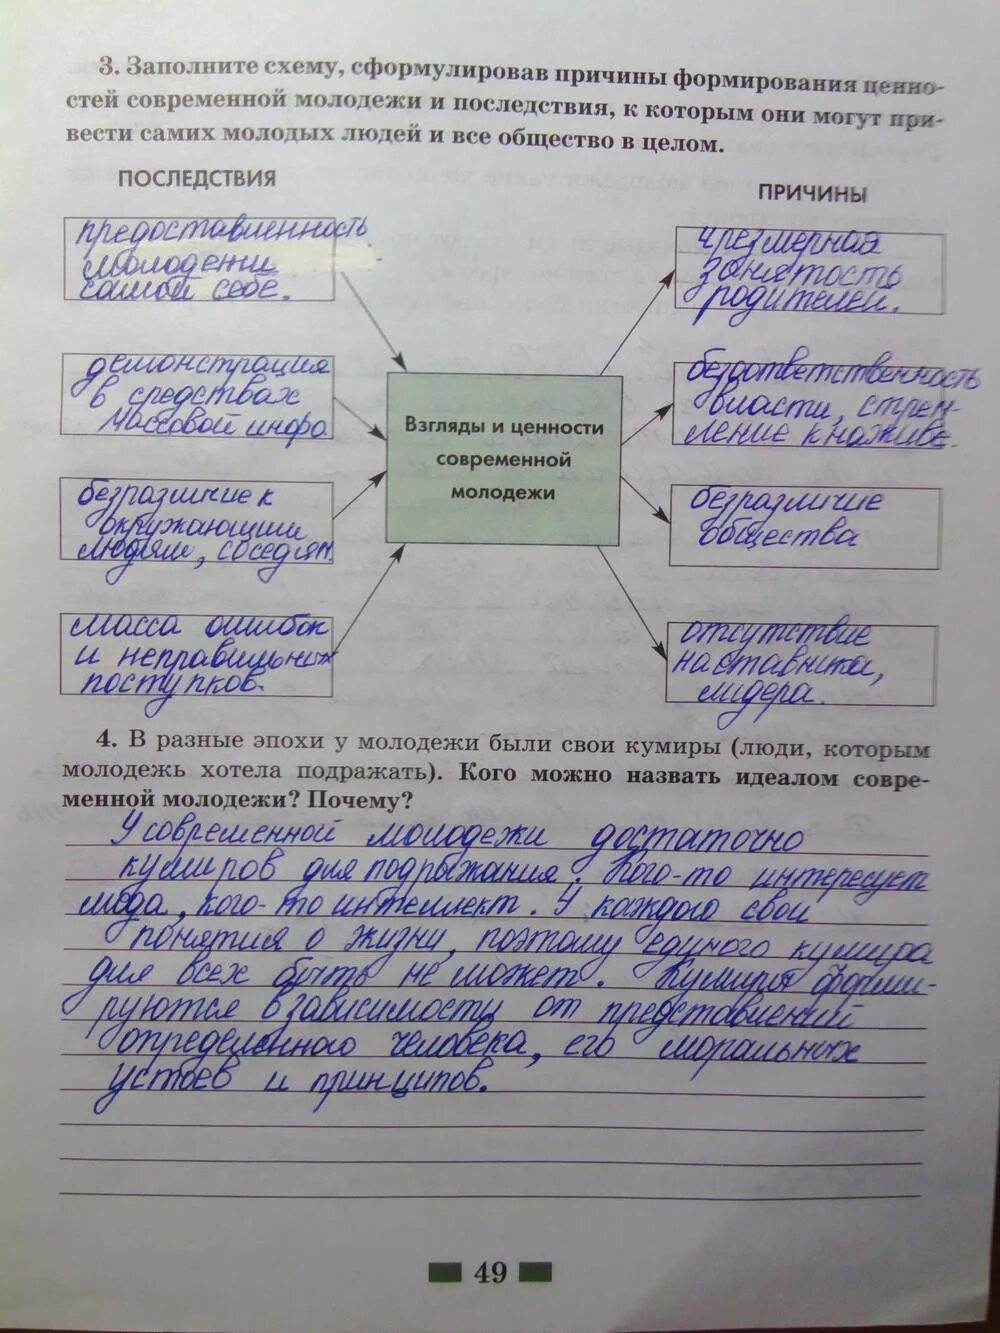 3. Заполните схему, сформулировав причины формирования ценно-
стей современной молодежи и последствия, к которым они могут при-
вести самих молодых людей и все общество в целом.
ПОСЛЕДСТВИЯ
ПРИЧИНЫ
предоставленность
молодежи
самой себе.
демонстрация
в средствах
массовой инфо
безразличие к
окружающим
людям, соседям
масса ошибок
и неправильных
поступков.
Взгляды и ценности
современной
молодежи
чрезмерная
занятость
родителей.
безответственность
власти, стрем-
ление к наживе.
безразличие
общества
отсутствие
наставника,
лидера.
4. В разные эпохи у молодежи были свои кумиры (люди, которым
молодежь хотела подражать). Кого можно назвать идеалом совре-
менной молодежи? Почему?
У современной молодежи достаточно
кумиров для подрыжания. Кого-то интересует
мода, кого-то интеллект. У каждого свои
понятия о жизни, поэтому единого кумира
для всех быть не может. Кумиры форми-
руются в зависимости от представлений
определенного человека, его моральных
устоев и принципов.
49